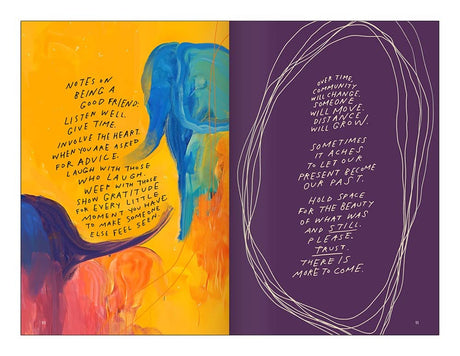 NOTES ON
BEING A
GOOD FRIEND:
LISTEN WELL.
GIVE TIME.
INVOLVE THE HEART
WHEN YOU ARE ASKED
FOR ADVICE.
LAUGH WITH THOSE
WHO LAUGH.
WEEP WITH THOSE
SHOW GRATITUDE
FOR EVERY LITTLE
MOMENT YOU HAVE
TO MAKE SOMEONE
ELSE FEEL SEEN.
OVER TIME,
COMMUNITY
WILL CHANGE.
SOMEONE
WILL MOVE.
DISTANCE
WILL GROW.
SOMETIMES
IT ACHES
TO LET OUR
PRESENT BECOME
OUR PAST.
HOLD SPACE
FOR THE BEAUTY
OF WHAT WAS
AND STILL.
PLEASE.
TRUST.
THERE IS
MORE TO COME.